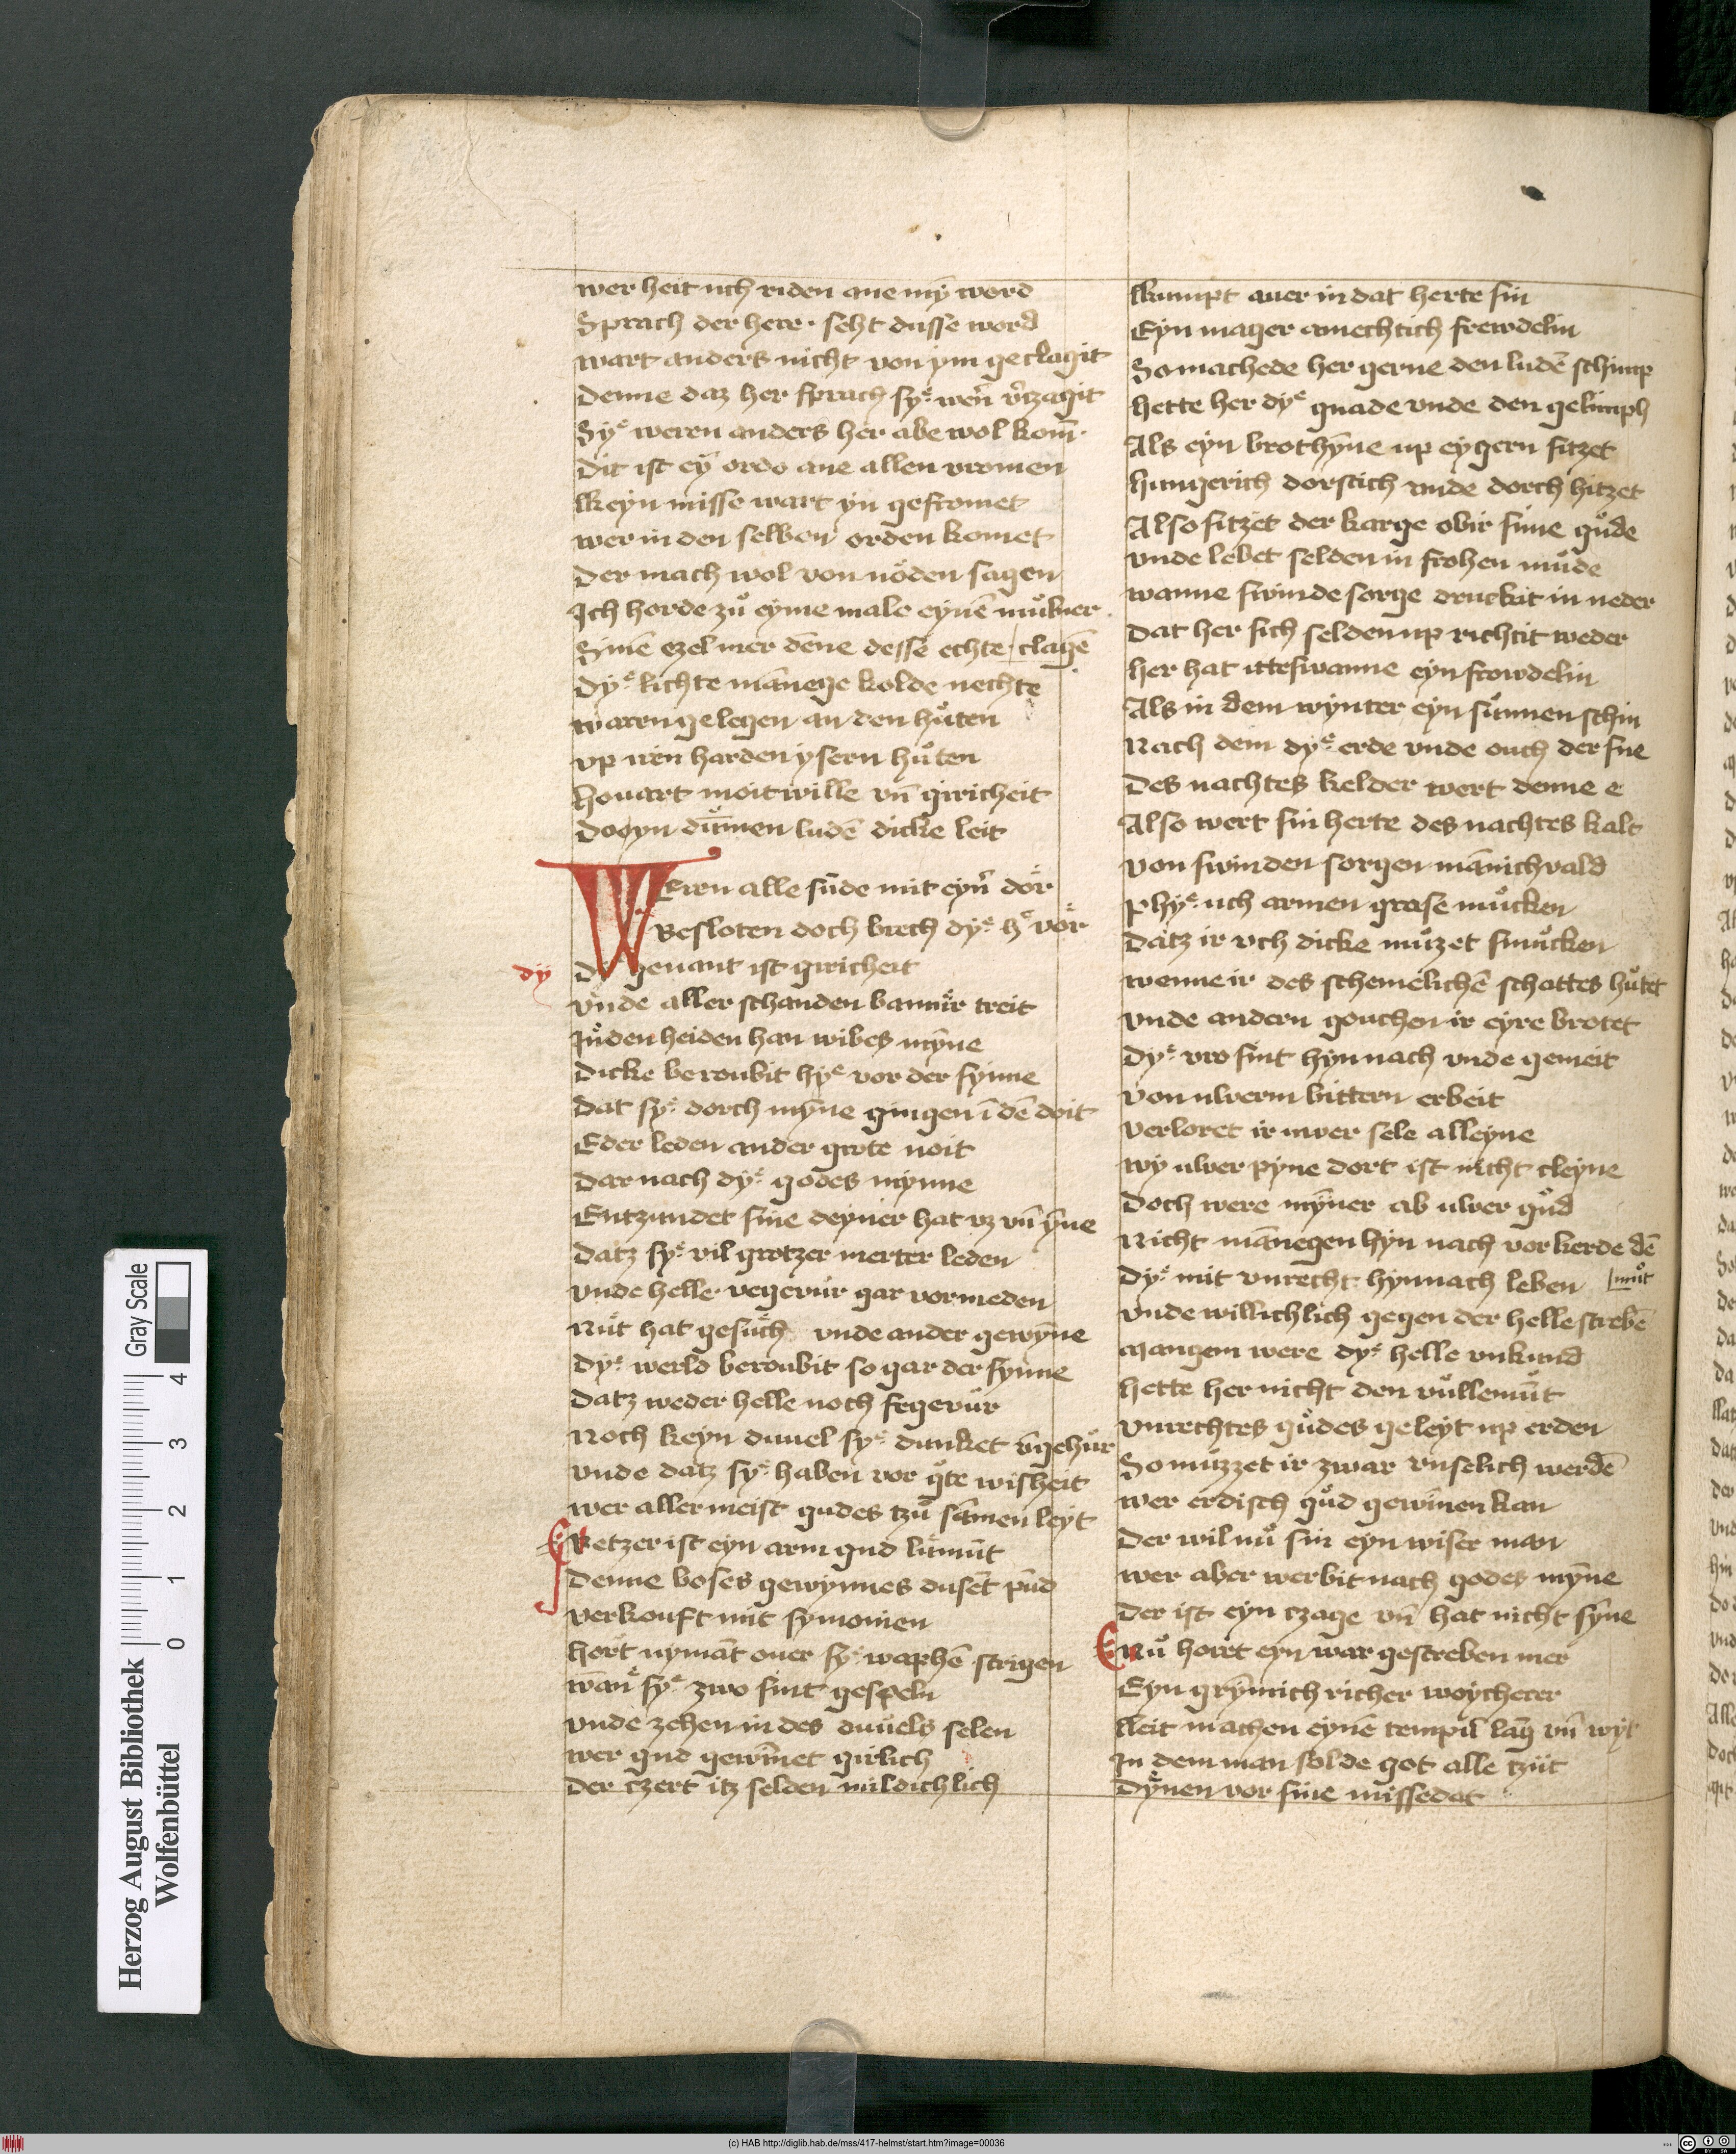 wer heit uch riden ane mȳ word
Sprach der here · seht dusse word
wart anders nicht von ym geclagit
Denne daz her sprach syͤ wen̄ v̄tzagit
Syͤ weren anders her abe wol kom̄
Dit ist eȳ ordo ane allen vromen
Keyn misse wart yn gefromet
wer in den selben orden komet
Der mach wol von nöden sagen
Ich horde zů eyme male eynē můlner
Sinē ezel mer dēne desse echte clagē
Dyͤ lichte mānege kolde nechte
waren gelegen an den hůten
vp iren harden ysern hůten
Houart moitwille vn̄ giricheit
Dooyn dūmen ludē dicke leit
WEren alle sūde mit eyn̄ dor
Besloten doch brech dyͤ hͤ vor
dy
Dy genant ist giricheit
vnde aller schanden bannir treit
Juden heiden han wibes mȳne
Dicke beroubit hyͤ vor der synne
Dat syͤ dorch mȳne gingen ī dē doit
Eder leden ander grote noit
Dar nach dyͤ godes mynne
Entzundet sine deyner hat vz vn̄ ȳne
Datz syͤ vil grotzer merter leden
vnde helle vegevür gar vormeden
Nut hat gesuch vnde ander gewȳne
Dyͤ werld beroubit so gar der synne
Datz weder helle noch fegevür
Noch keyn duuel syͤ dunket v̄gehůr
vnde datz syͤ haben vor gůte wisheit
wer aller meist gudes tzů sāmen leyt
Betzer ist eyn arm gud lūmūt
Denne boses gewynnes dusēt pūd
verkouft mit symonien
Hort nymāt ouer syͤ waphē strigen
wān syͤ zwo sint gespeln
vnde zehen in des duuels selen
wer gud gewīnet girlich
Der tzert itz selden mildichlich
Kumpt auer in dat herte sin
Eyn mager amechtich frewdelin
So machede her gerne den ludē schimp
Hette her dyͤ gnade vnde den gelimph
Als eyn brothȳne vp eygern sitzet
Hungerich dorstich vnde dorch hitzet
Also sitzet der karge obir sime gůde
vnde lebet selden in frohen můde
wanne swinde sorge druckit in neder
Dat her sich selden vp richtit weder
Her hat itteswanne eyn frowdelin
Als in dem wynter eyn sunnen schin
Nach dem dyͤ erde vnde ouch der sne
Des nachtes kelder wert denne e
Also wert sin herte des nachtes kalt
von swinden sorgen mānichvald
Phyͤ uch armen grase můcken
Datz ir vch dicke můzet smůcken
wenne ir des schemelichē schattes hůtet
vnde andern gouchen ir eyre brotet
Dyͤ vro sint hyn nach vnde gemeit
Von ulverm bittern erbeit
Verloret ir iuwer sele alleyne
wy ulver pyne dort ist nicht cleyne
Doch were mȳner ab ulver gůd
Nicht mānegen hyn nach vorkerde dē
můt
Dyͤ mit vnrecht hynnach leben
vnde willichlich gegen der helle strebē
Mangem were dyͤ helle vnkund
Hette her nicht den vůllemūt
vnrechtes gůdes geleyt vp erden
So můzzet ir zwar vnselich werdē
wer erdisch gůd gewīnen kan
Der wil nů sin eyn wiser man
wer aber werbit nach godes mȳne
Der ist eyn tzage vn̄ hat nicht sȳne
Nů horet eyn war gestreben mer
Eyn grȳmich richer woycherer
Leit machen eynē tempil lāg vn̄ wyt
In dem man solde got alle tzüt
Dynen vor sine missedat
(c) HAB http://diglib.hab.de/mss/417-helmst/start.htm?image=00036
Herzog August Bibliothek
Wolfenbüttel
Gray Scale
0 1 2 3 4